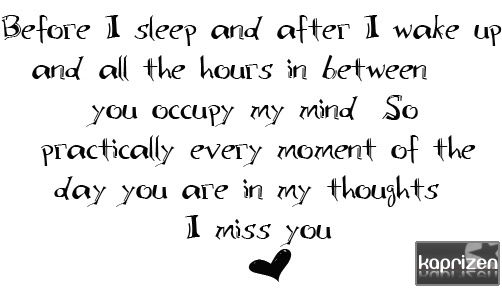 Before I sleep and after I wake up
and all the hours in between
you occupy my mind So
practically every moment of the
day you are in my thoughts
I miss you
kaprizen